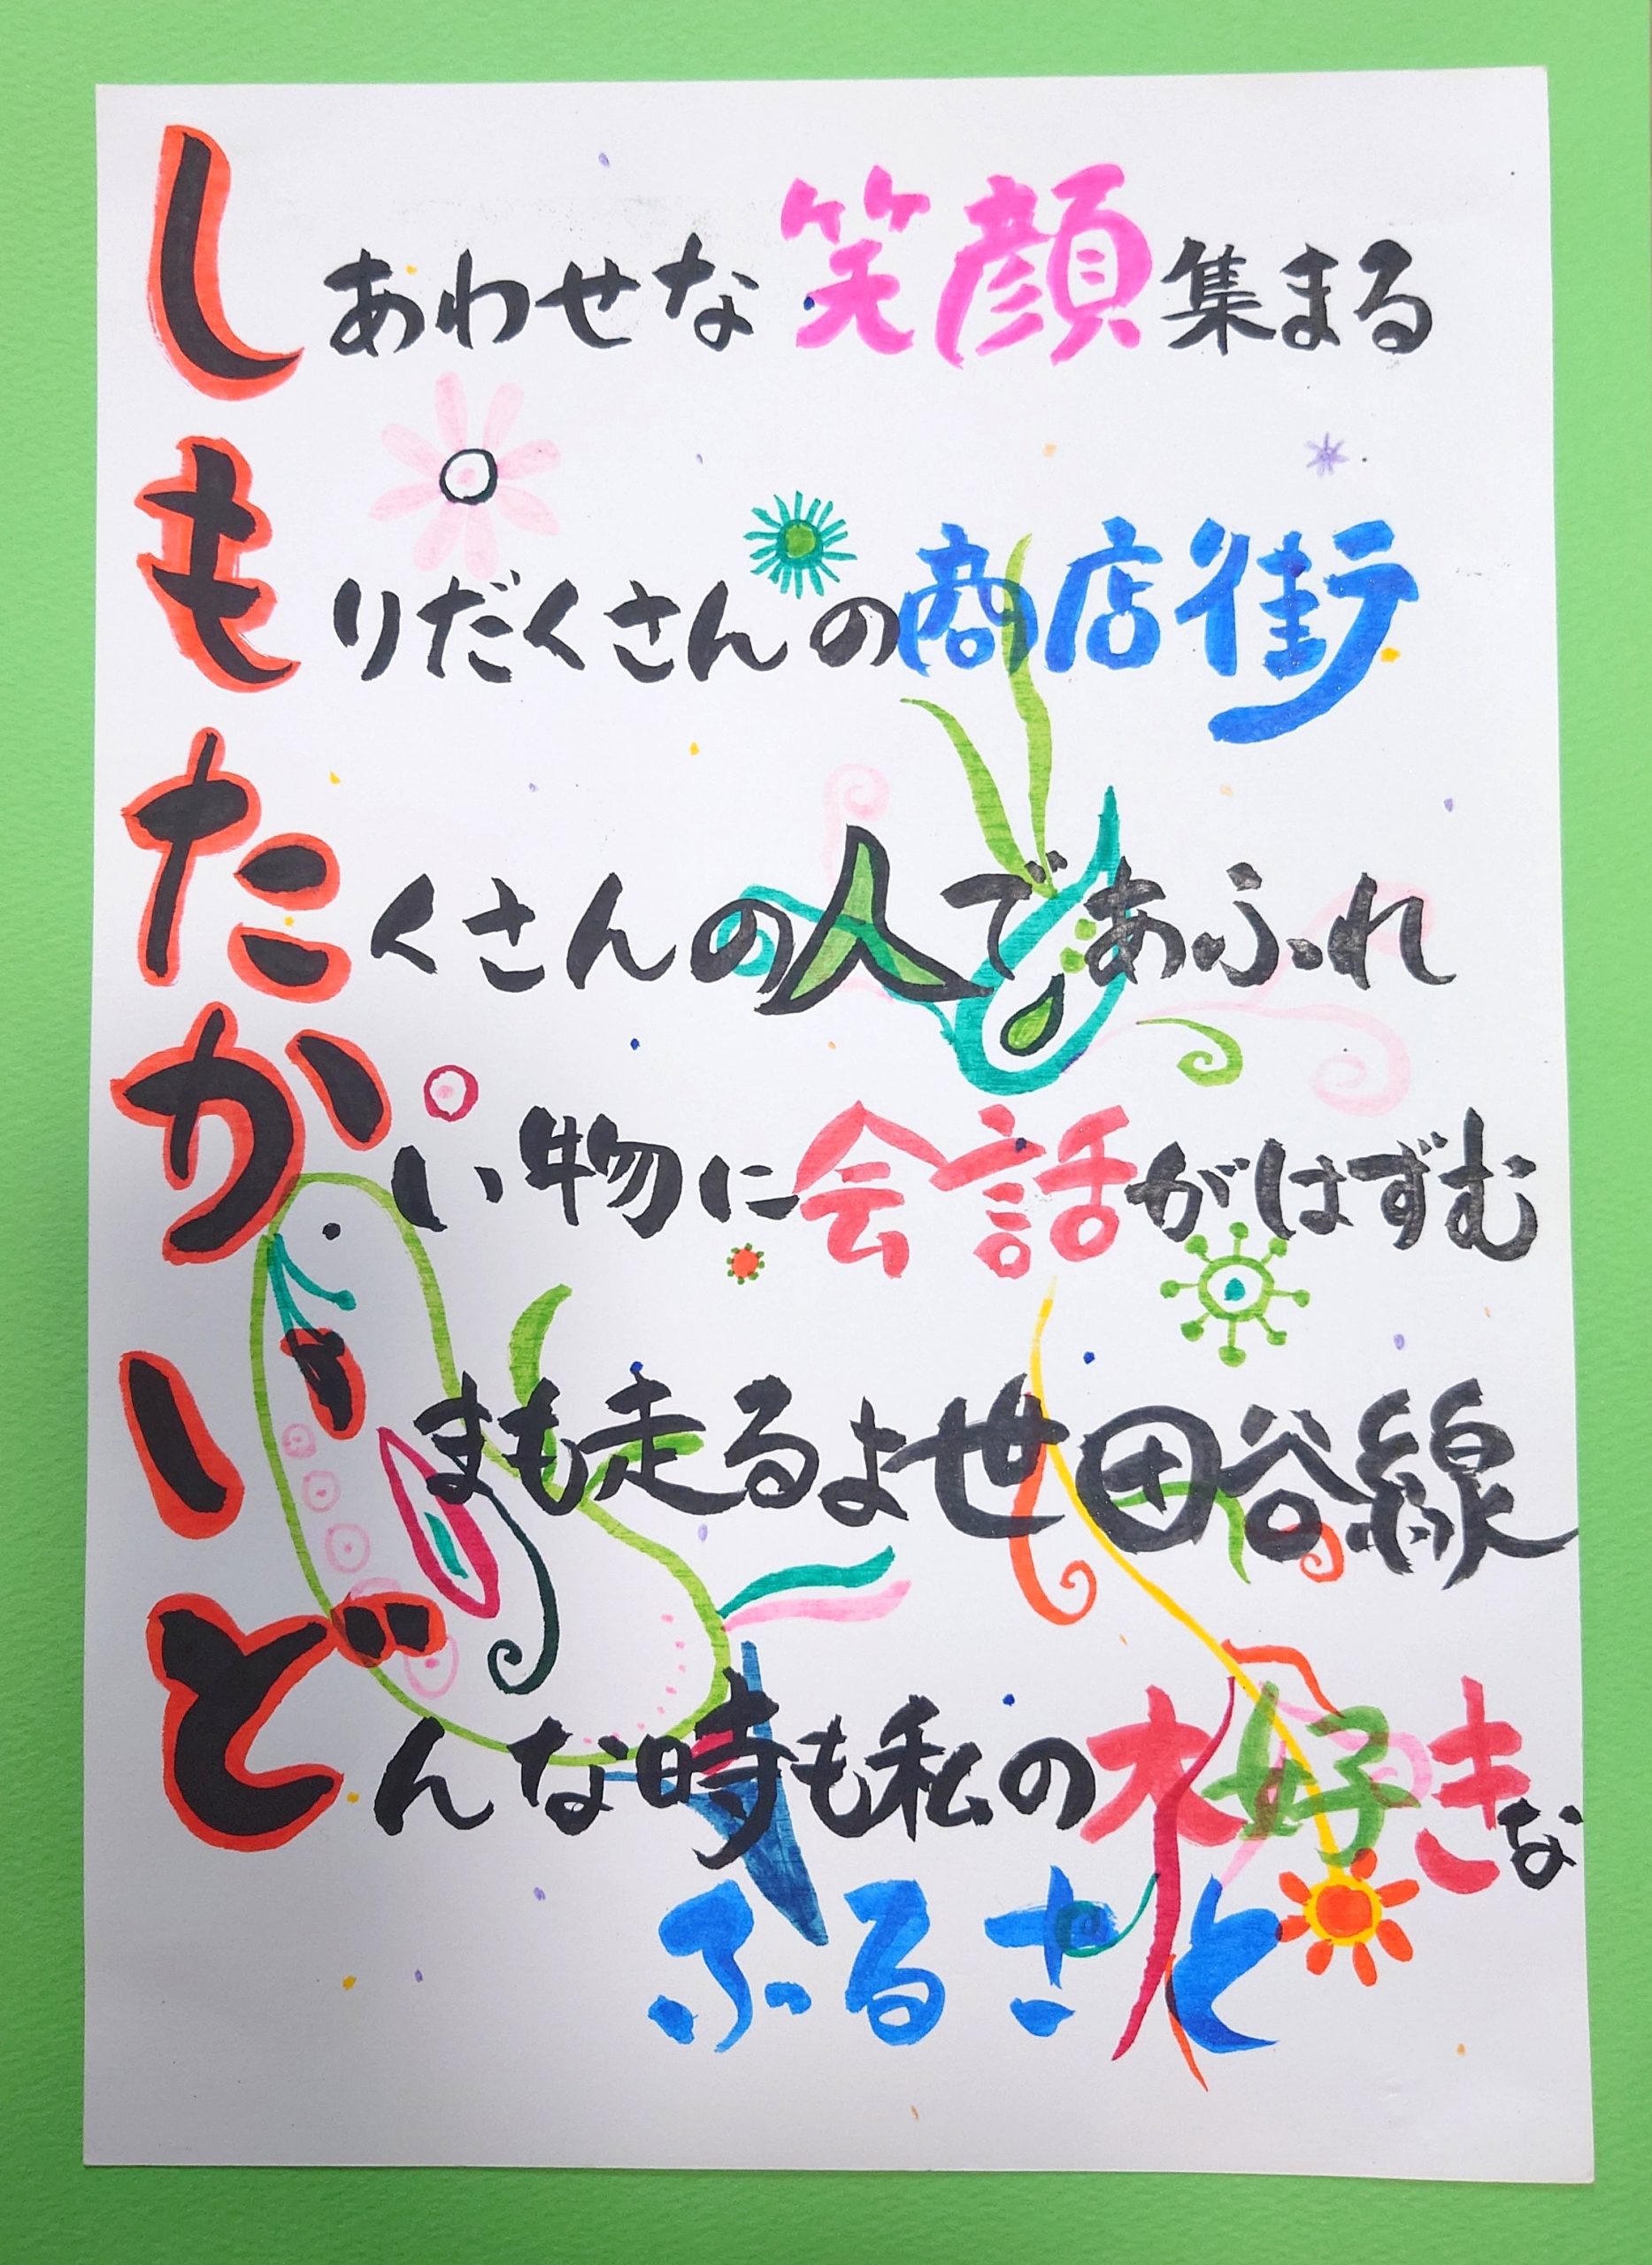 しあわせな笑顔集まる
もりだくさんの商店街
たくさんの人であふれ
かい物に会話がはずむ
いまも走るよ世田谷線
どんな時も私の大好きな
ふるさと